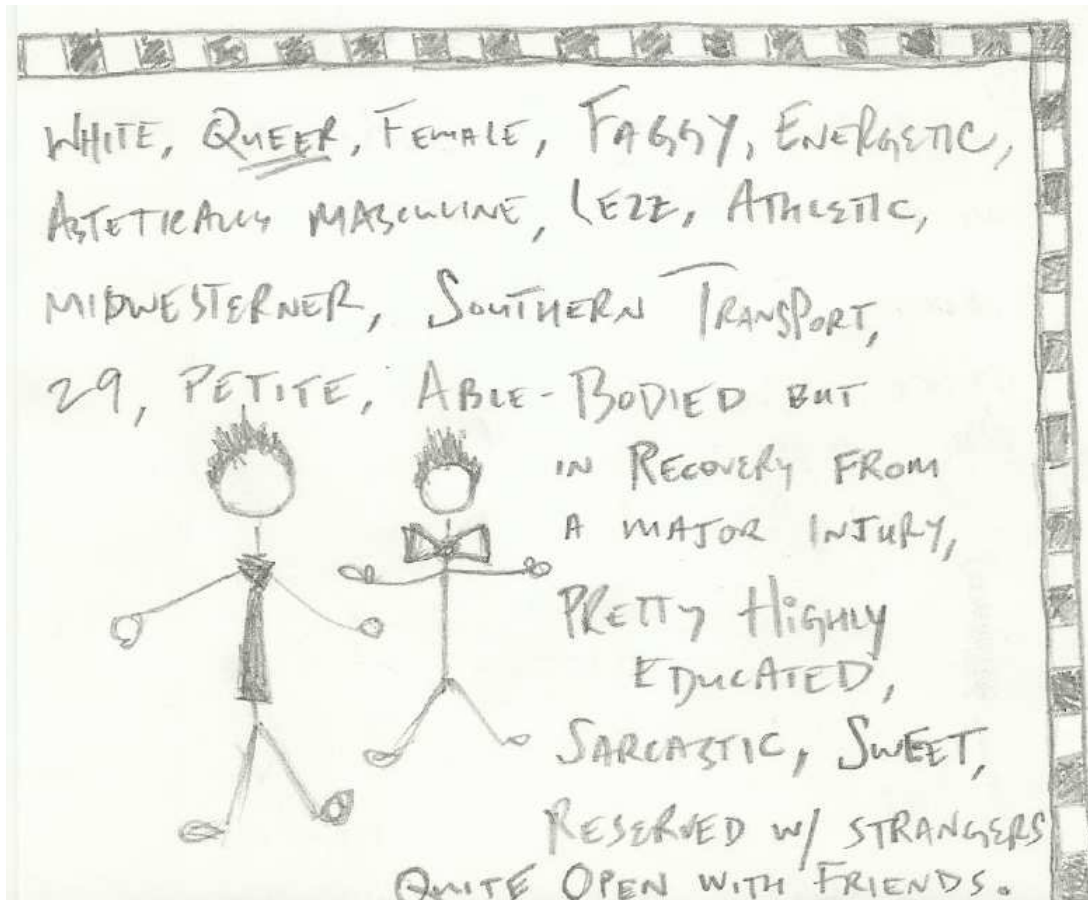 WHITE, QUEER, FEMALE, FAGGY, ENERGETIC,
ASTETICALLY MASCULINE, LEZZ, ATHLETIC,
MIDWESTERNER, SOUTHERN TRANSPORT,
29, PETITE, ABLE-BODIED BUT
IN RECOVERY FROM
A MAJOR INJURY,
PRETTY HIGHLY
EDUCATED,
SARCASTIC, SWEET,
RESERVED W/ STRANGERS
QUITE OPEN WITH FRIENDS.